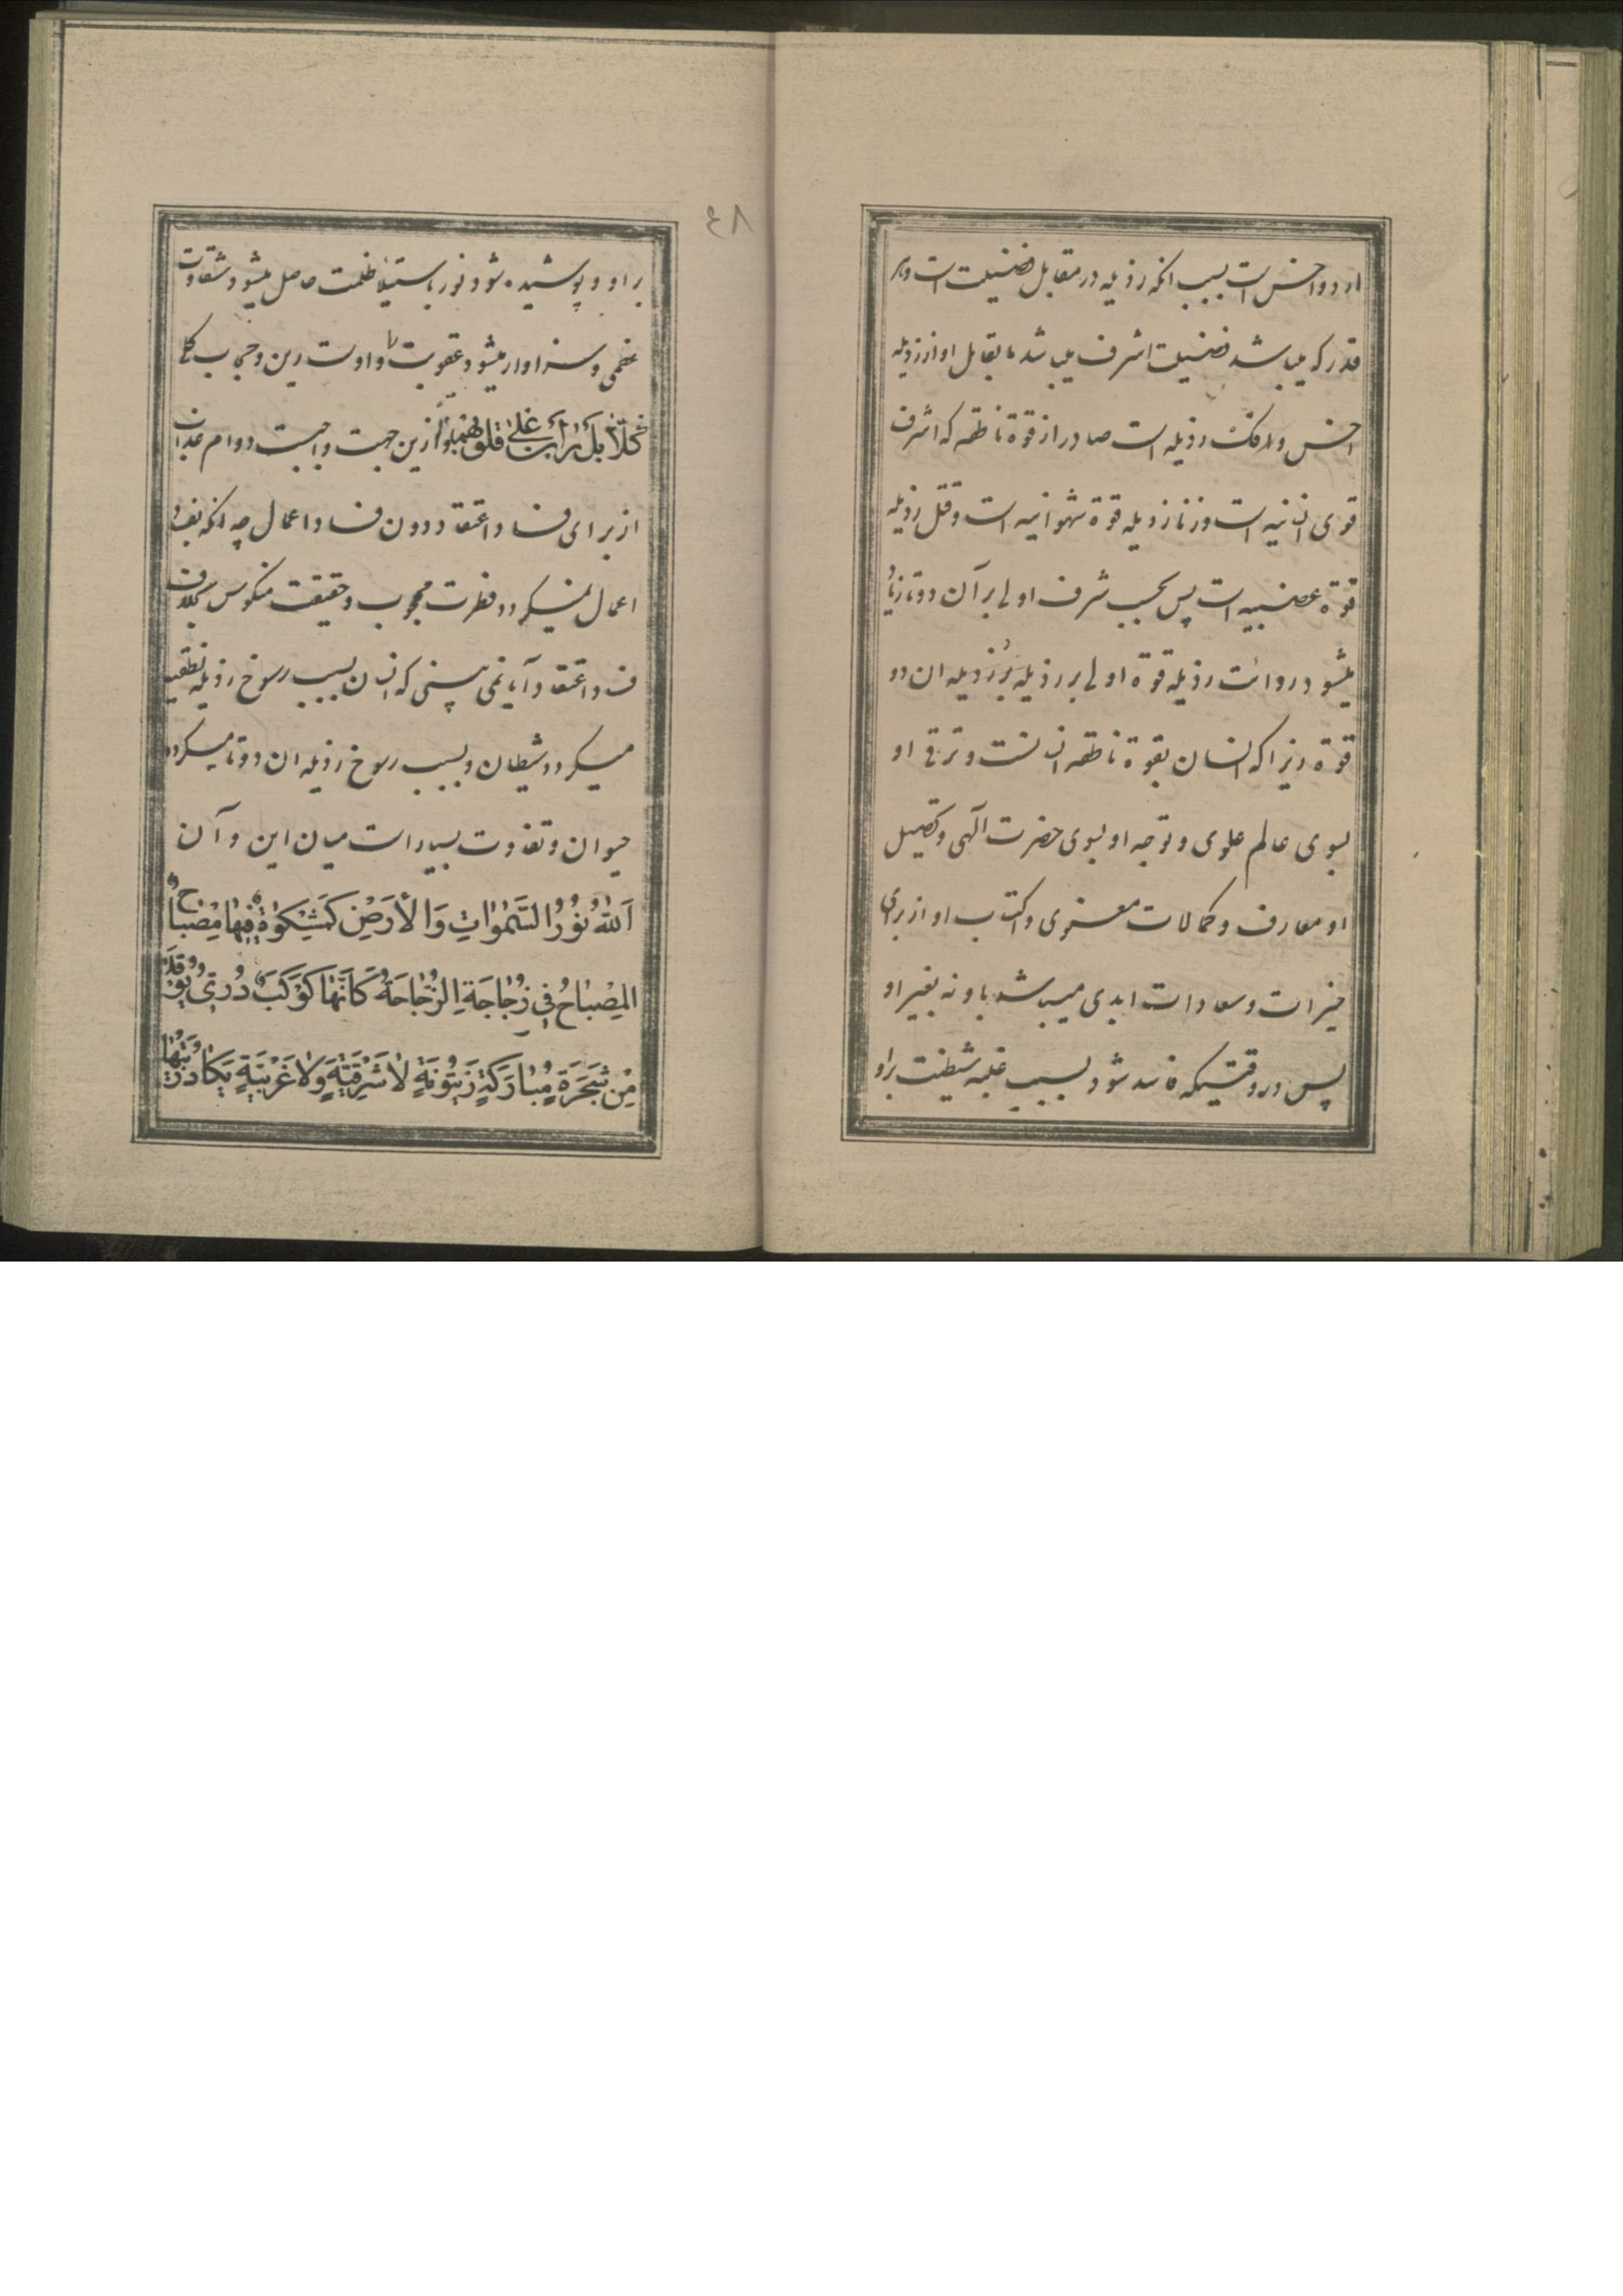 ار دو اخس است بسبب انکه رذیله در مقابل فضیلت است و هر
قدر که میباشد فضیلت اشرف میباشد ما یقابل او از رذیله
اخس و افک رذیله است صادر از قوة ناطقه که اشرف
قوی انسانیه است و زنا رذیله قوة شهوانیه است و قتل رذیله
قوة غضبیه است پس بحسب شرف اولی بر آن دو تا زیاد
میشود روائت رذیله قوة اولی بر رذیله ان دو
قوة زیرا که انسان بقوة ناطقه انسانست و ترقی او
بسوی عالم علوی و توجه او بسوی حضرت آلهی و تحصیل
او معارف و کمالات معنوی و اکتساب او از برای
خیرات و سعادات ابدی میباشد باو نه بغیر او
پس در وقتیکه فاسد شود بسبب غلبه شیطنت براو
۴۸
براو و پوشیده شود نور باستیلا ظلمت حاصل میشود شقاوت
عظمی و سزاوار میشود عقوبت را و اوست رین و حجاب کلی
كَلّا بَلْ رانَ عَلى قلوبهم ازین جهت واجبست دوام عذاب
از برای فساد اعتقاد دون فساد اعمال چه انکه بفساد
اعمال نمیکردد فطرت محجوب و حقیقت منکوس بخلاف
فساد اعتقاد آیا نمی بینی که انسان بسبب رسوخ رذیله نطقیه
میکردد شیطان و بسبب رسوخ رذیله ان دو تا میکردد
حیوان و تفاوت بسیار است میان این و آن
اَللهُ نُورُ السَّمٰوٰاتِ وَالْأَرْضِ كَمِشْكوٰةٍ فيهٰا مِصْبٰاحٌ
المِصْبٰاحُ فِي زُجٰاجَةٍ اِلزُّجٰاجَةُ كَاَنَّهٰا كَوْكَبٌ دُرِّيٌّ يُوقَدُ
مِنْ شَجَرَةٍ مُبٰارَكَةٍ زَيْتُونَةٍ لٰا شَرْقِيَّةٍ وَلٰا غَرْبِيَّةٍ يَكٰادُ زَيْتُهٰا